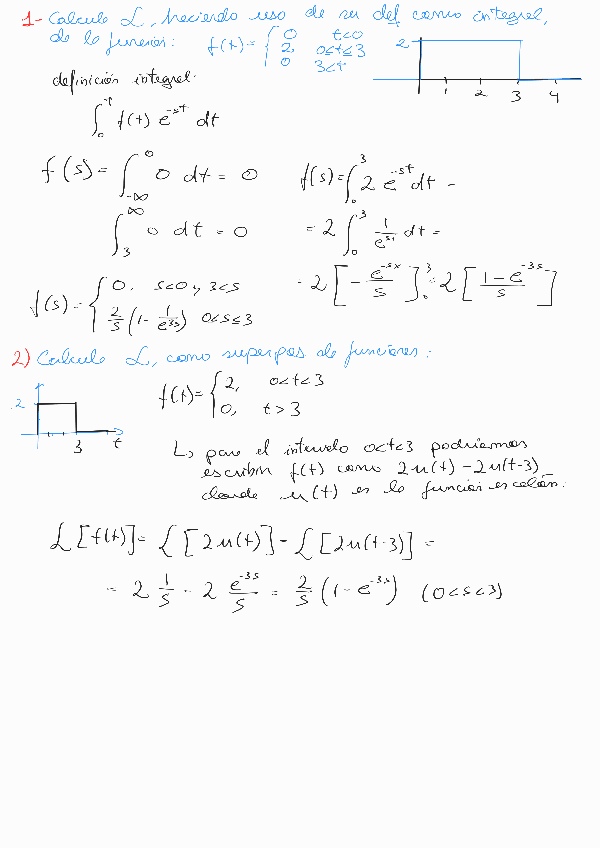 1- Calcule ℒ, haciendo uso de su def como integral,
de la función: f(t) = { 0 t<0
2, 0≤t≤3
0 3<t
2
1 2 3 4
definición integral:
∫₀ f(t) e^{-st} dt
f(s) = ∫_{-∞}^{0} 0 dt = 0
∫_{3}^{∞} 0 dt = 0
f(s) = ∫_{0}^{3} 2 e^{-st} dt =
= 2 ∫_{0}^{3} 1/e^{st} dt =
= 2 [ - e^{-sx}/s ]_{0}^{3} = 2 [ (1 - e^{-3s})/s ]
f(s) = { 0, s<0 y 3<s
2/s (1 - 1/e^{3s}) 0<s≤3
2) Calcule ℒ, como superpos de funciones:
2
3 t
f(t) = { 2, 0<t<3
0, t>3
↳ para el intervalo 0<t<3 podríamos
escribir f(t) como 2u(t) - 2u(t-3)
donde u(t) es la función escalón.
ℒ[f(t)] = ℒ[2u(t)] - ℒ[2u(t-3)] =
= 2 1/s - 2 e^{-3s}/s = 2/s (1 - e^{-3s}) (0<s<3)